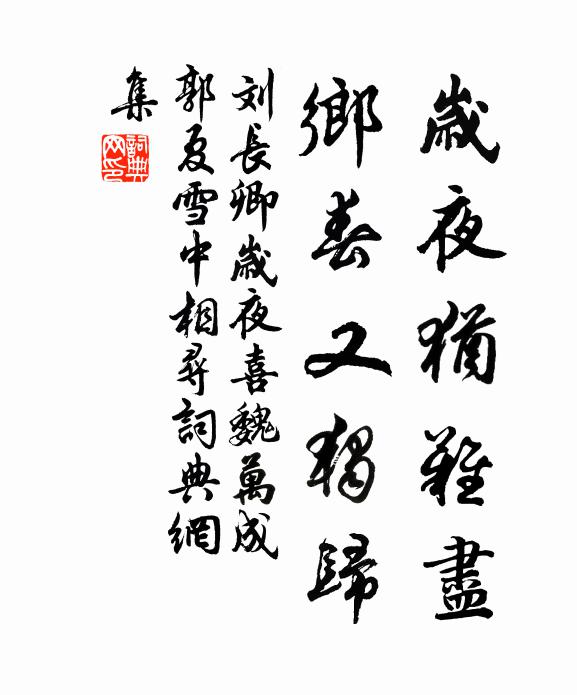 歲夜猶難盡
鄉春又獨歸
刘長卿歲夜喜魏萬成
郭夏雪中相尋詞典網
集
詞典
网印